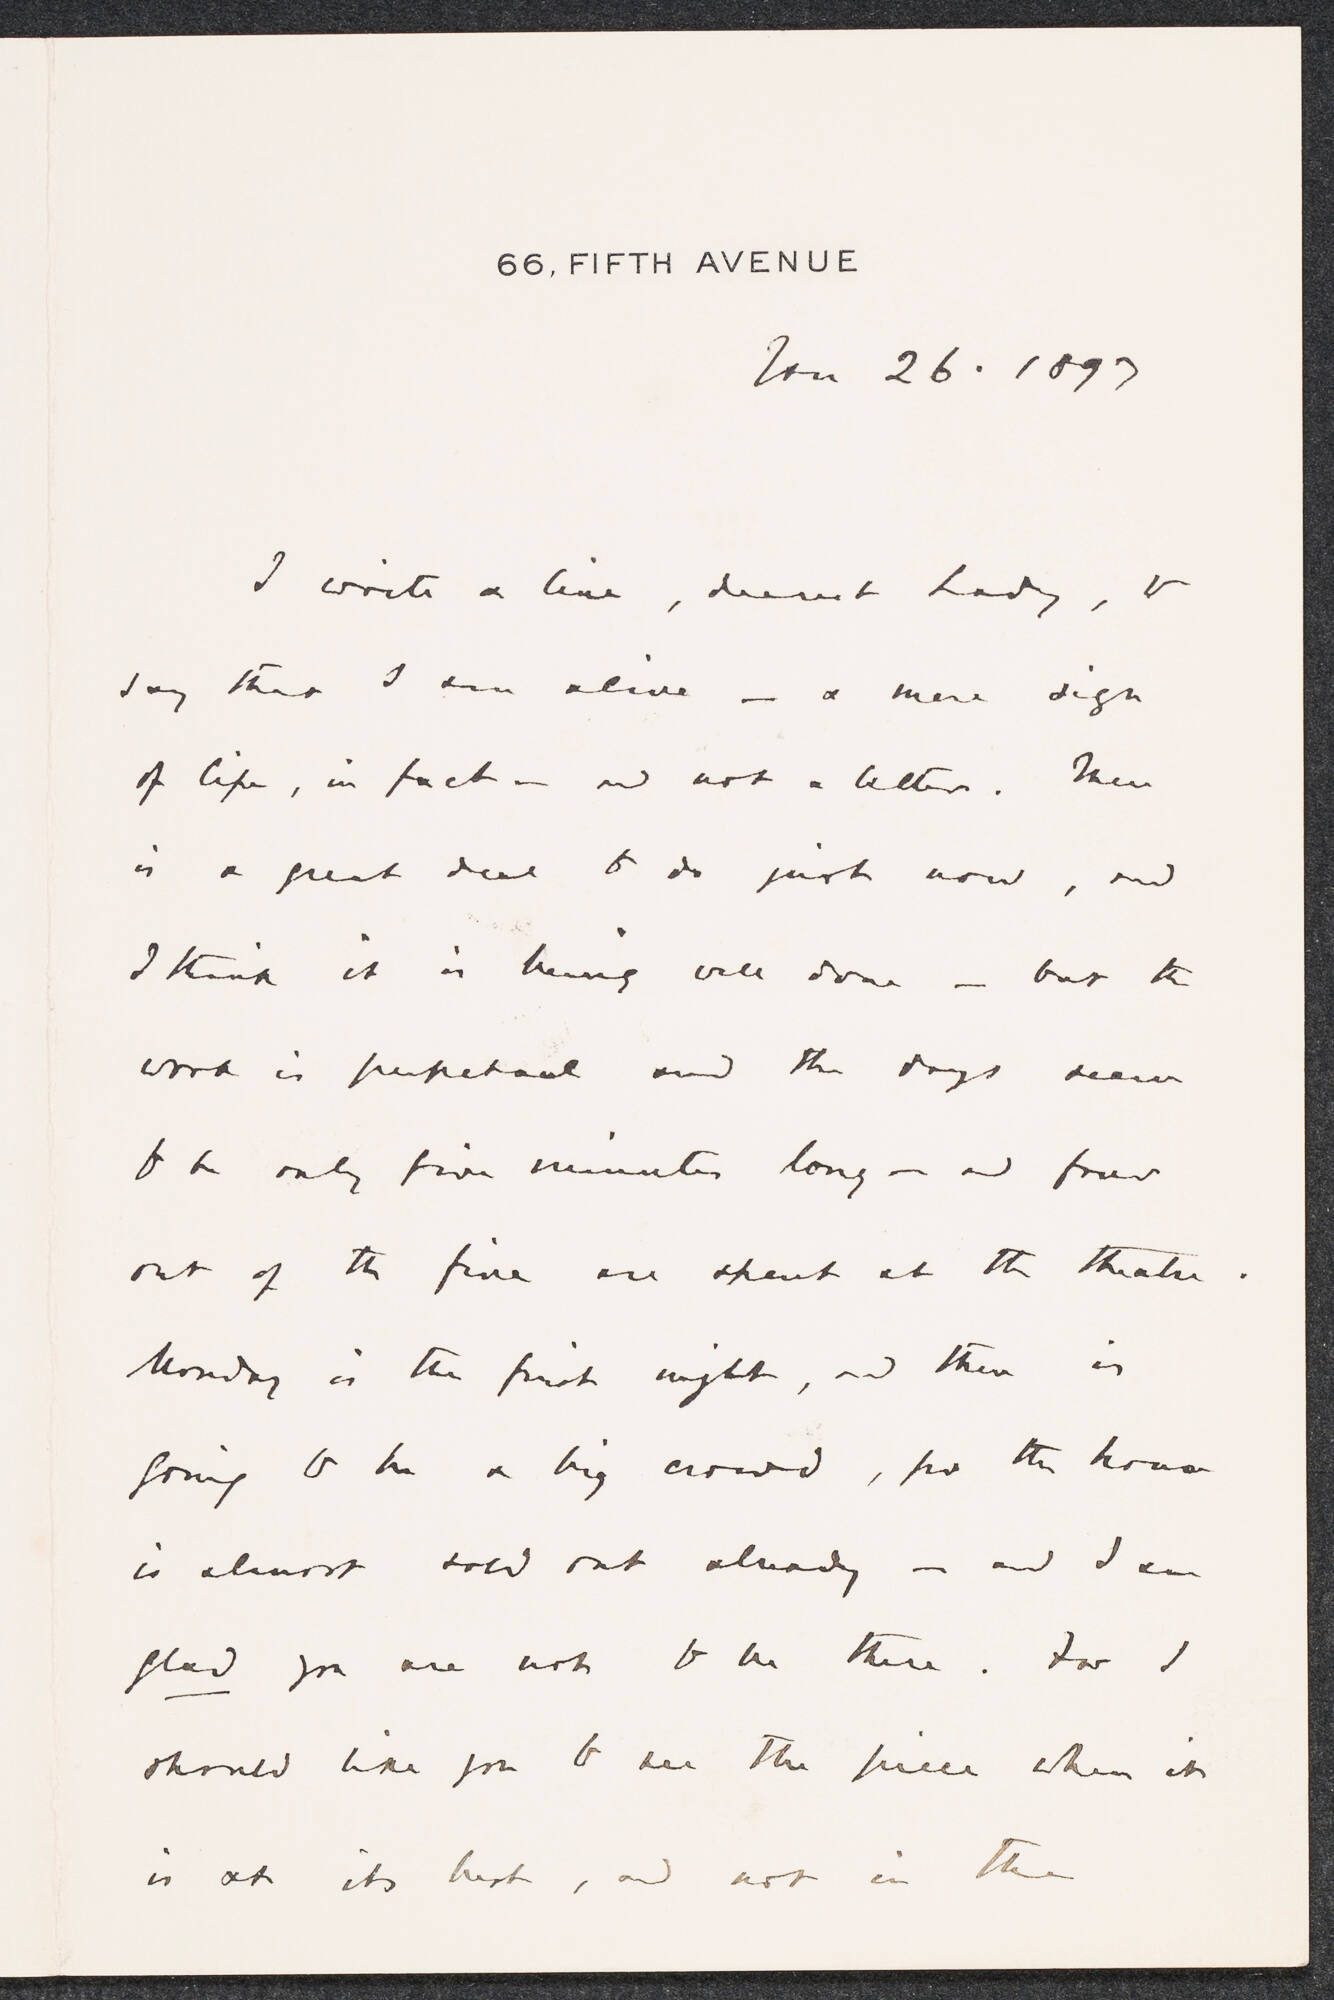 66, FIFTH AVENUE
Jan 26. 1897
I write a line, dearest Lady, to
say that I am alive — a mere sign
of life, in fact — and not a letter. There
is a great deal to do just now, and
I think it is being well done — but the
work is perpetual and the days seem
to be only five minutes long — and four
out of the five are spent at the theatre.
Monday is the first night, and there is
going to be a big crowd, for the house
is almost sold out already — and I am
glad you are not to be there. For I
should like you to see the piece when it
is at its best, and not in the